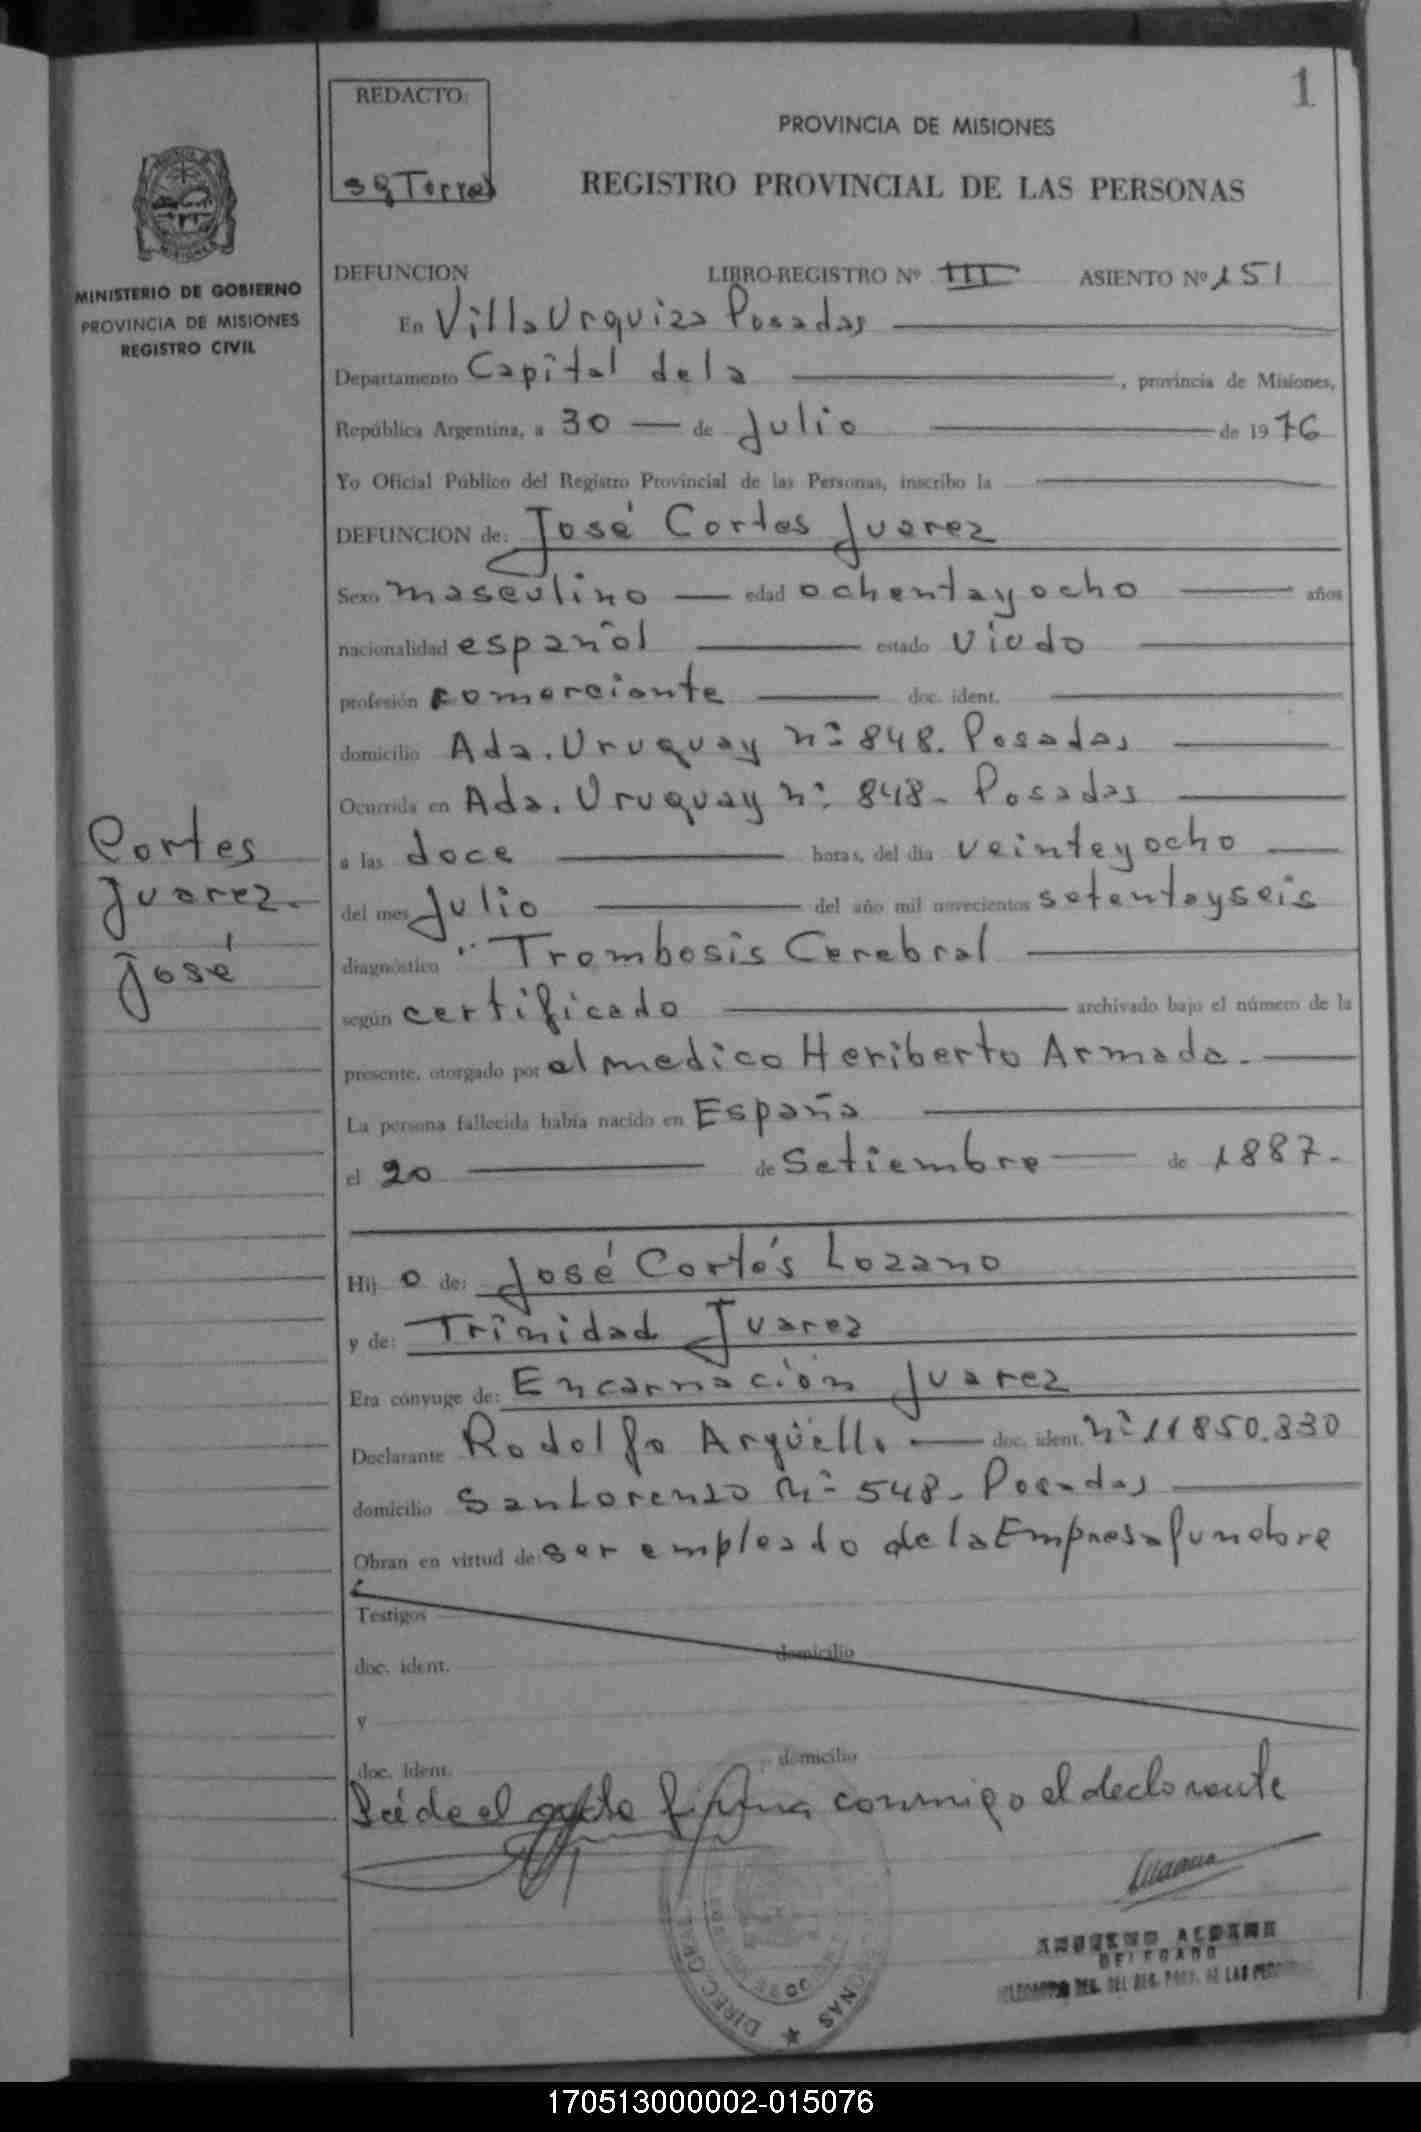 1
REDACTO:
PROVINCIA DE MISIONES
REGISTRO PROVINCIAL DE LAS PERSONAS
MINISTERIO DE GOBIERNO
PROVINCIA DE MISIONES
REGISTRO CIVIL
DEFUNCION LIBRO-REGISTRO Nº III ASIENTO Nº 151
En Villa Urquiza Posadas
Departamento Capital de la , provincia de Misiones,
República Argentina, a 30 de Julio de 1976
Yo Oficial Público del Registro Provincial de las Personas, inscribo la
DEFUNCION de: José Cortes Juarez
Sexo masculino edad ochenta y ocho años
nacionalidad español estado viudo
profesión comerciante doc. ident.
domicilio Ada. Uruguay nº 848. Posadas
Ocurrida en Ada. Uruguay nº 848- Posadas
a las doce horas, del día veinte y ocho
del mes Julio del año mil novecientos setenta y seis
Cortes
Juarez-
José
diagnóstico "Trombosis Cerebral
según certificado archivado bajo el número de la
presente, otorgado por el medico Heriberto Armada.
La persona fallecida había nacido en España
el 20 de Setiembre de 1887.
Hij o de: José Cortés Lozano
y de: Trinidad Juarez
Era cónyuge de: Encarnación Juarez
Declarante Rodolfo Argüello doc. ident. nº 11850.330
domicilio San Lorenzo Nº 548- Posadas
Obran en virtud de: ser empleado de la Empresa funebre
Testigos
doc. ident. domicilio
y
doc. ident. domicilio
Leída el acta firma conmigo el declarante
DELEGADO
170513000002-015076